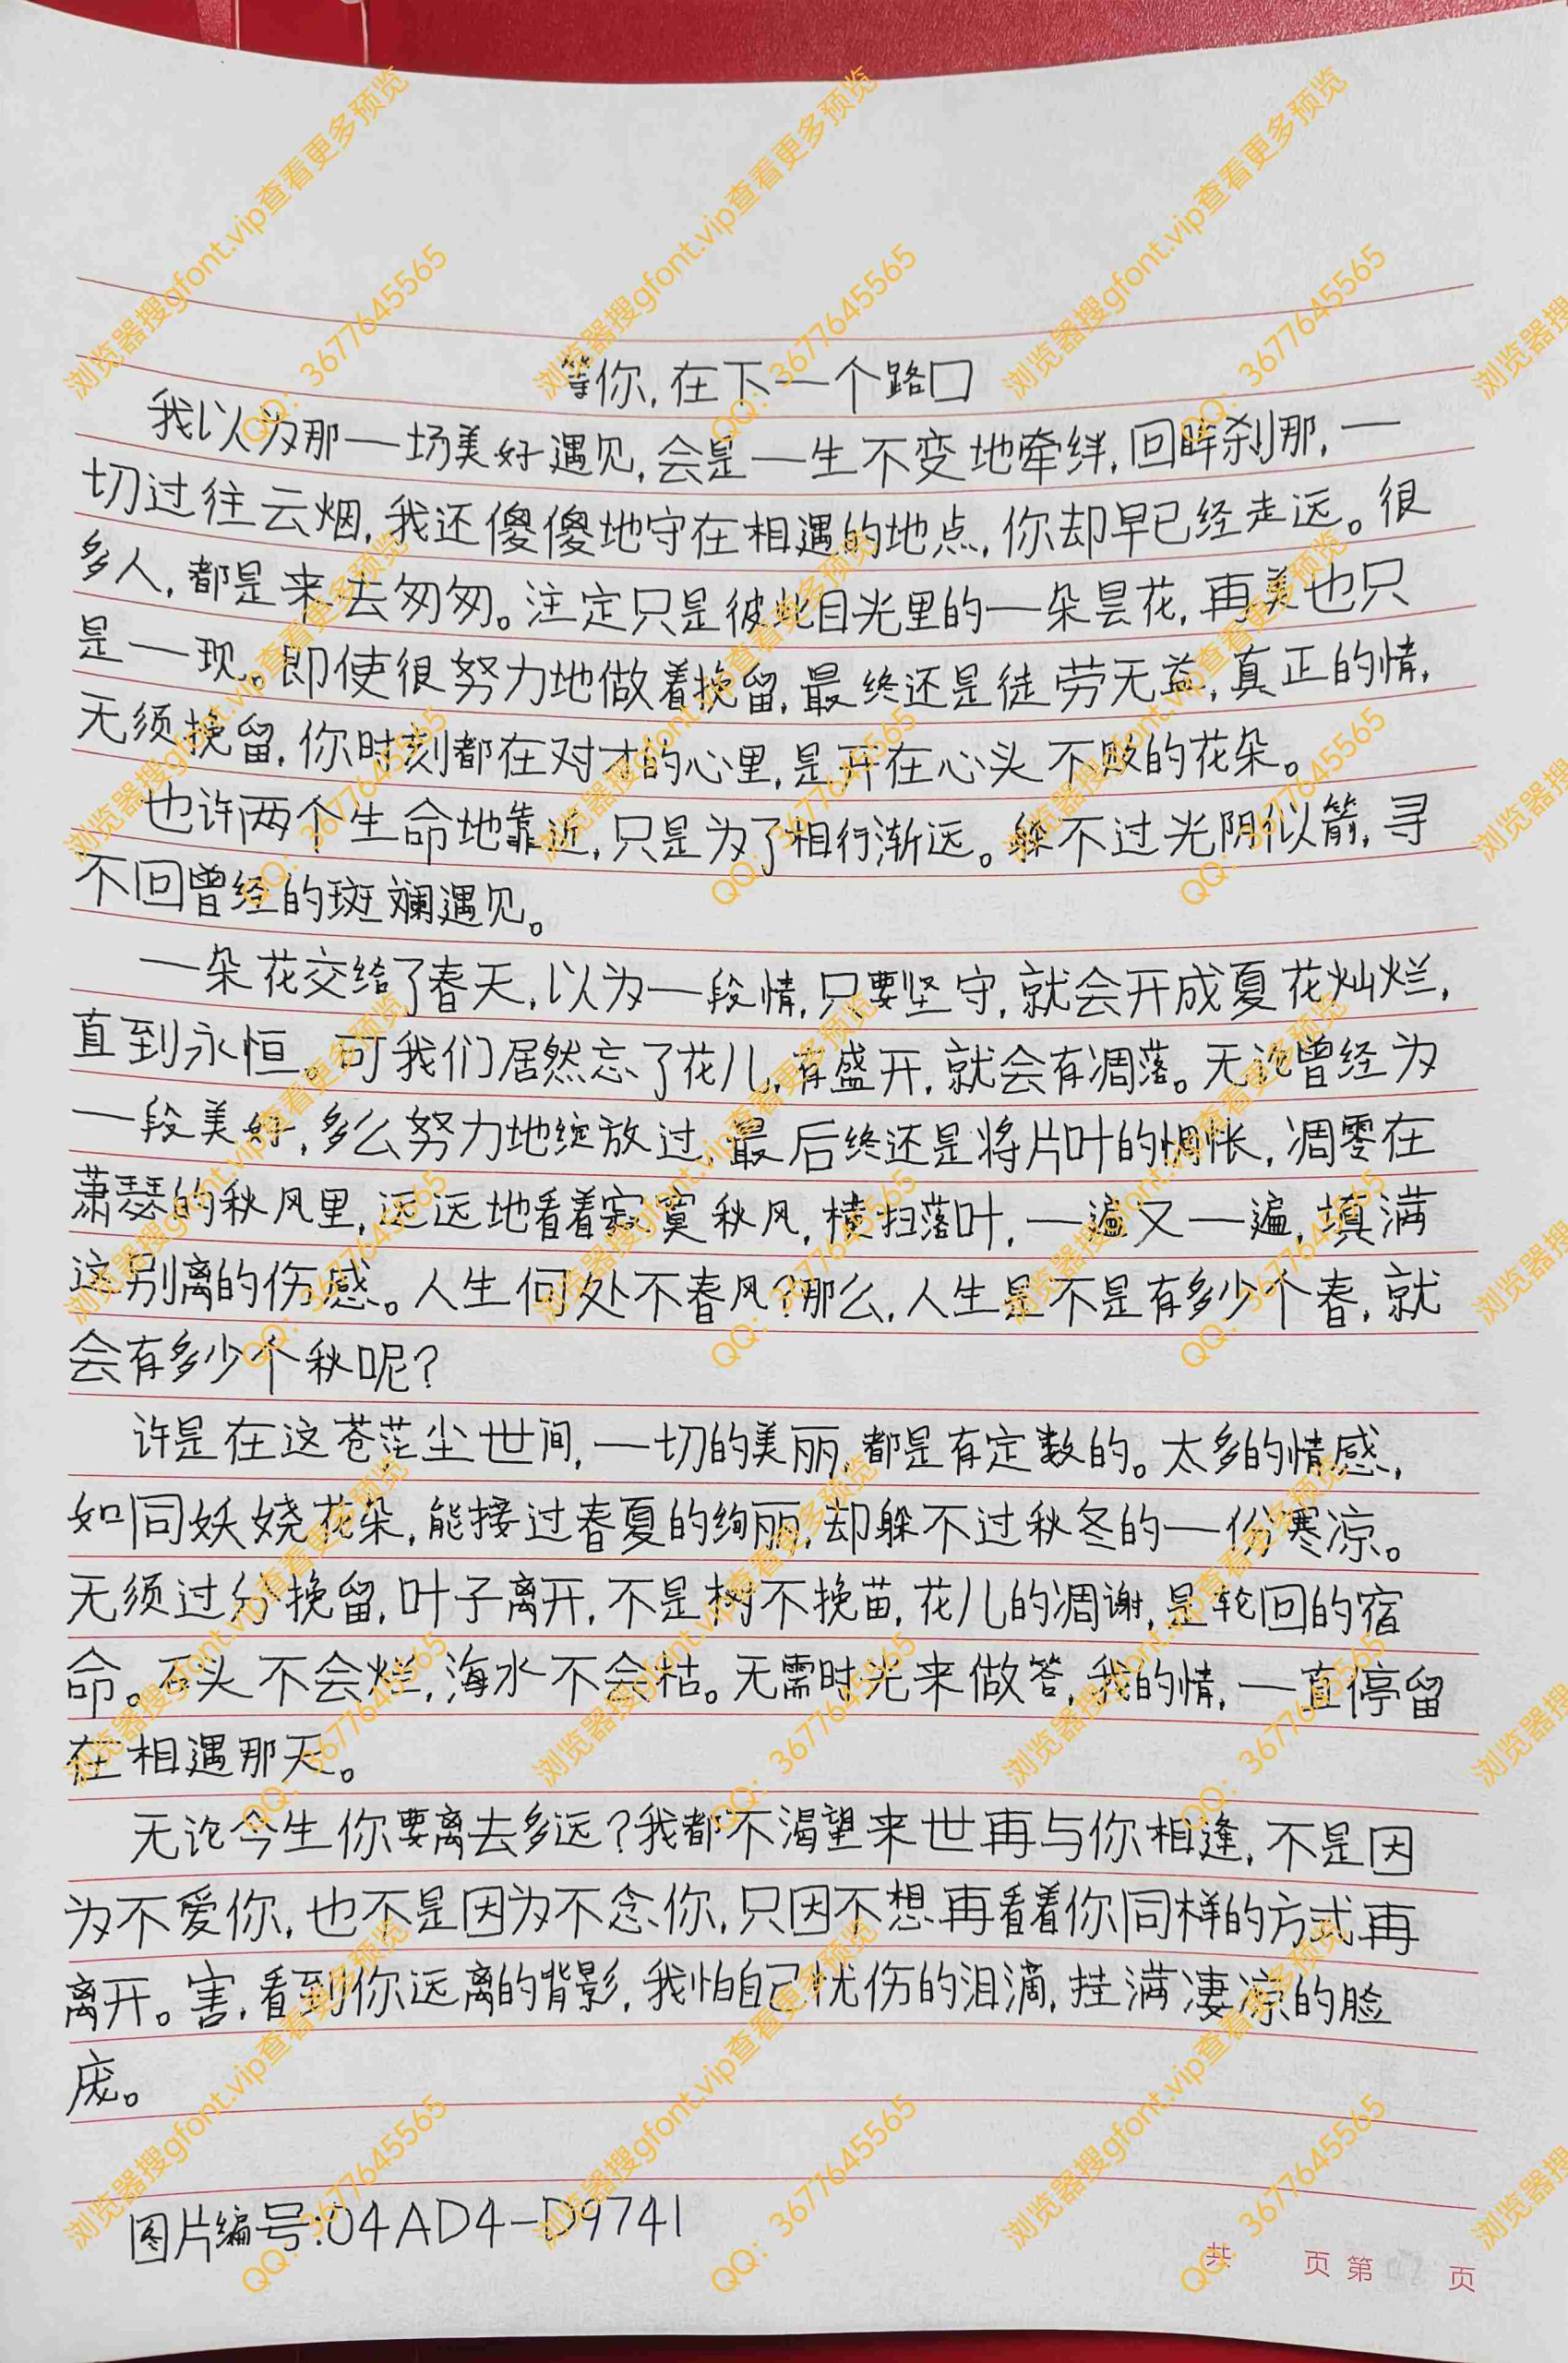 等你,在下一个路口
我以为那一场美好遇见,会是一生不变地牵绊,回眸刹那,一
切过往云烟,我还傻傻地守在相遇的地点,你却早已经走远。很
多人,都是来去匆匆。注定只是彼此目光里的一朵昙花,再美也只
是一现。即使很努力地做着挽留,最终还是徒劳无益,真正的情,
无须挽留,你时刻都在对才的心里,是开在心头不败的花朵。
也许两个生命地靠近,只是为了相行渐远。躲不过光阴似箭,寻
不回曾经的斑斓遇见。
一朵花交给了春天,以为一段情,只要坚守,就会开成夏花灿烂,
直到永恒。可我们居然忘了花儿,有盛开,就会有凋落。无论曾经为
一段美好,多么努力地绽放过,最后终还是将片叶的惆怅,凋零在
萧瑟的秋风里,远远地看着寂寞秋风,横扫落叶,一遍又一遍,填满
这别离的伤感。人生何处不春风?那么,人生是不是有多少个春,就
会有多少个秋呢?
许是在这苍茫尘世间,一切的美丽,都是有定数的。太多的情感,
如同妖娆花朵,能接过春夏的绚丽,却躲不过秋冬的一份寒凉。
无须过分挽留,叶子离开,不是树不挽苗,花儿的凋谢,是轮回的宿
命。石头不会烂,海水不会枯。无需时光来做答,我的情,一直停留
在相遇那天。
无论今生你要离去多远?我都不渴望来世再与你相逢,不是因
为不爱你,也不是因为不念你,只因不想再看着你同样的方式再
离开。害,看到你远离的背影,我怕自己忧伤的泪滴,挂满凄凉的脸
庞。
图片编号:04AD4-D9741
共 页第 页
浏览器搜gfont.vip查看更多预览
QQ: 3677645565